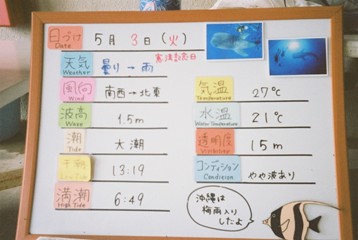 日づけ Date 5月 3日(火)
憲法記念日
天気 Weather 曇り→雨
風向 Wind 南西→北東
気温 Temperature 27℃
波高 Wave 1.5m
水温 Water Temperature 21℃
潮 Tide 大潮
透明度 15m
干潮 Low Tide 13:19
コンディション Condition やや波あり
満潮 High Tide 6:49
沖縄は
梅雨入り
したよ